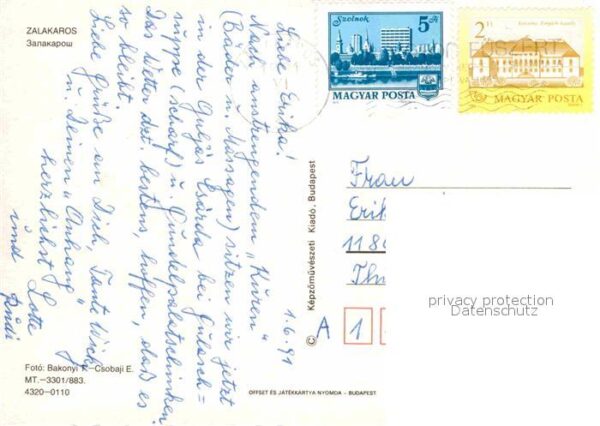 ZALAKAROS
Залакарош
1.6.91
Liebe Erika!
Nach anstrengendem „Kuren"
(Bäder u. Massagen) sitzen wir jetzt
in der Gulyás Csárda bei Gulasch=
suppe (scharf) u. Gundelpalatschinken.
Das Wetter dzt. bestens, hoffen, daß es
so bleibt.
Liebe Grüße an Dich, Tante Mitzi
u. Deinen „Anhang"
herzlichst Lotte
und
Rudi
Fotó: Bakonyi F.—Csobaji E.
MT.—3301/883.
4320—0110
OFFSET ÉS JÁTÉKKÁRTYA NYOMDA – BUDAPEST
© Képzőművészeti Kiadó, Budapest
Szolnok
5 Ft
MAGYAR POSTA
2 Ft
MAGYAR POSTA
Frau
Erik
118
A 1
privacy protection
Datenschutz